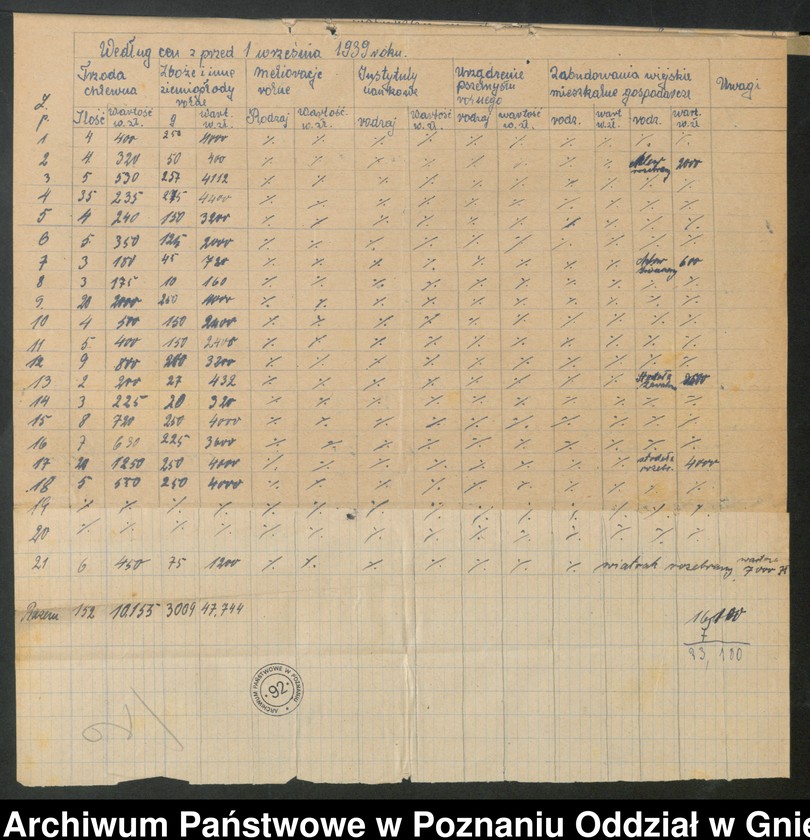 Według cen z przed 1 września 1939 roku.
L.p. Trzoda chlewna Zboże i inne ziemiopłody rolne Melioracje rolne Instytuty naukowe Urządzenie przemysłu rolnego Zabudowania wiejskie mieszkalne gospodarcze Uwagi
Ilość Wartość w. zł. q Wart. w. zł. Rodzaj Wartość w. zł. rodzaj Wartość w zł rodzaj wartość w. zł. rodz. wart w. zł. rodz. wart. w. zł
1 4 400 250 4000 % % % % % % % % %
2 4 320 50 400 % % % % % % % % 2000
3 5 530 257 4112 % % % % % % % % % %
4 35 235 275 4400 % % % % % % % % % %
5 4 240 150 3200 % % % % % % % % % %
6 5 350 125 2000 % % % % % % % % % %
7 3 180 45 720 % % % % % % % % 600
8 3 175 10 160 % % % % % % % % % %
9 20 2000 250 4000 % % % % % % % % % %
10 4 500 150 2400 % % % % % % % % % %
11 5 400 150 2400 % % % % % % % % % %
12 9 800 200 3200 % % % % % % % % % %
13 2 200 27 432 % % % % % % % % stodoła 2500
14 3 225 20 320 % % % % % % % % % %
15 8 720 250 4000 % % % % % % % % % %
16 7 630 225 3600 % % % % % % % % % %
17 20 1250 250 4000 % % % % % % % % stodoła rozebr. 4000
18 5 550 250 4000 % % % % % % % % % %
19 % % % % % % % % % % % % % %
20 % % % % % % % % % % % % % %
21 6 450 75 1200 % % % % % % % wiatrak rozebrany wartość 7000 zł
Razem 152 10.155 3009 47,744
16,100
7
23,100
ARCHIWUM PAŃSTWOWE W POZNANIU
92
Archiwum Państwowe w Poznaniu Oddział w Gnie